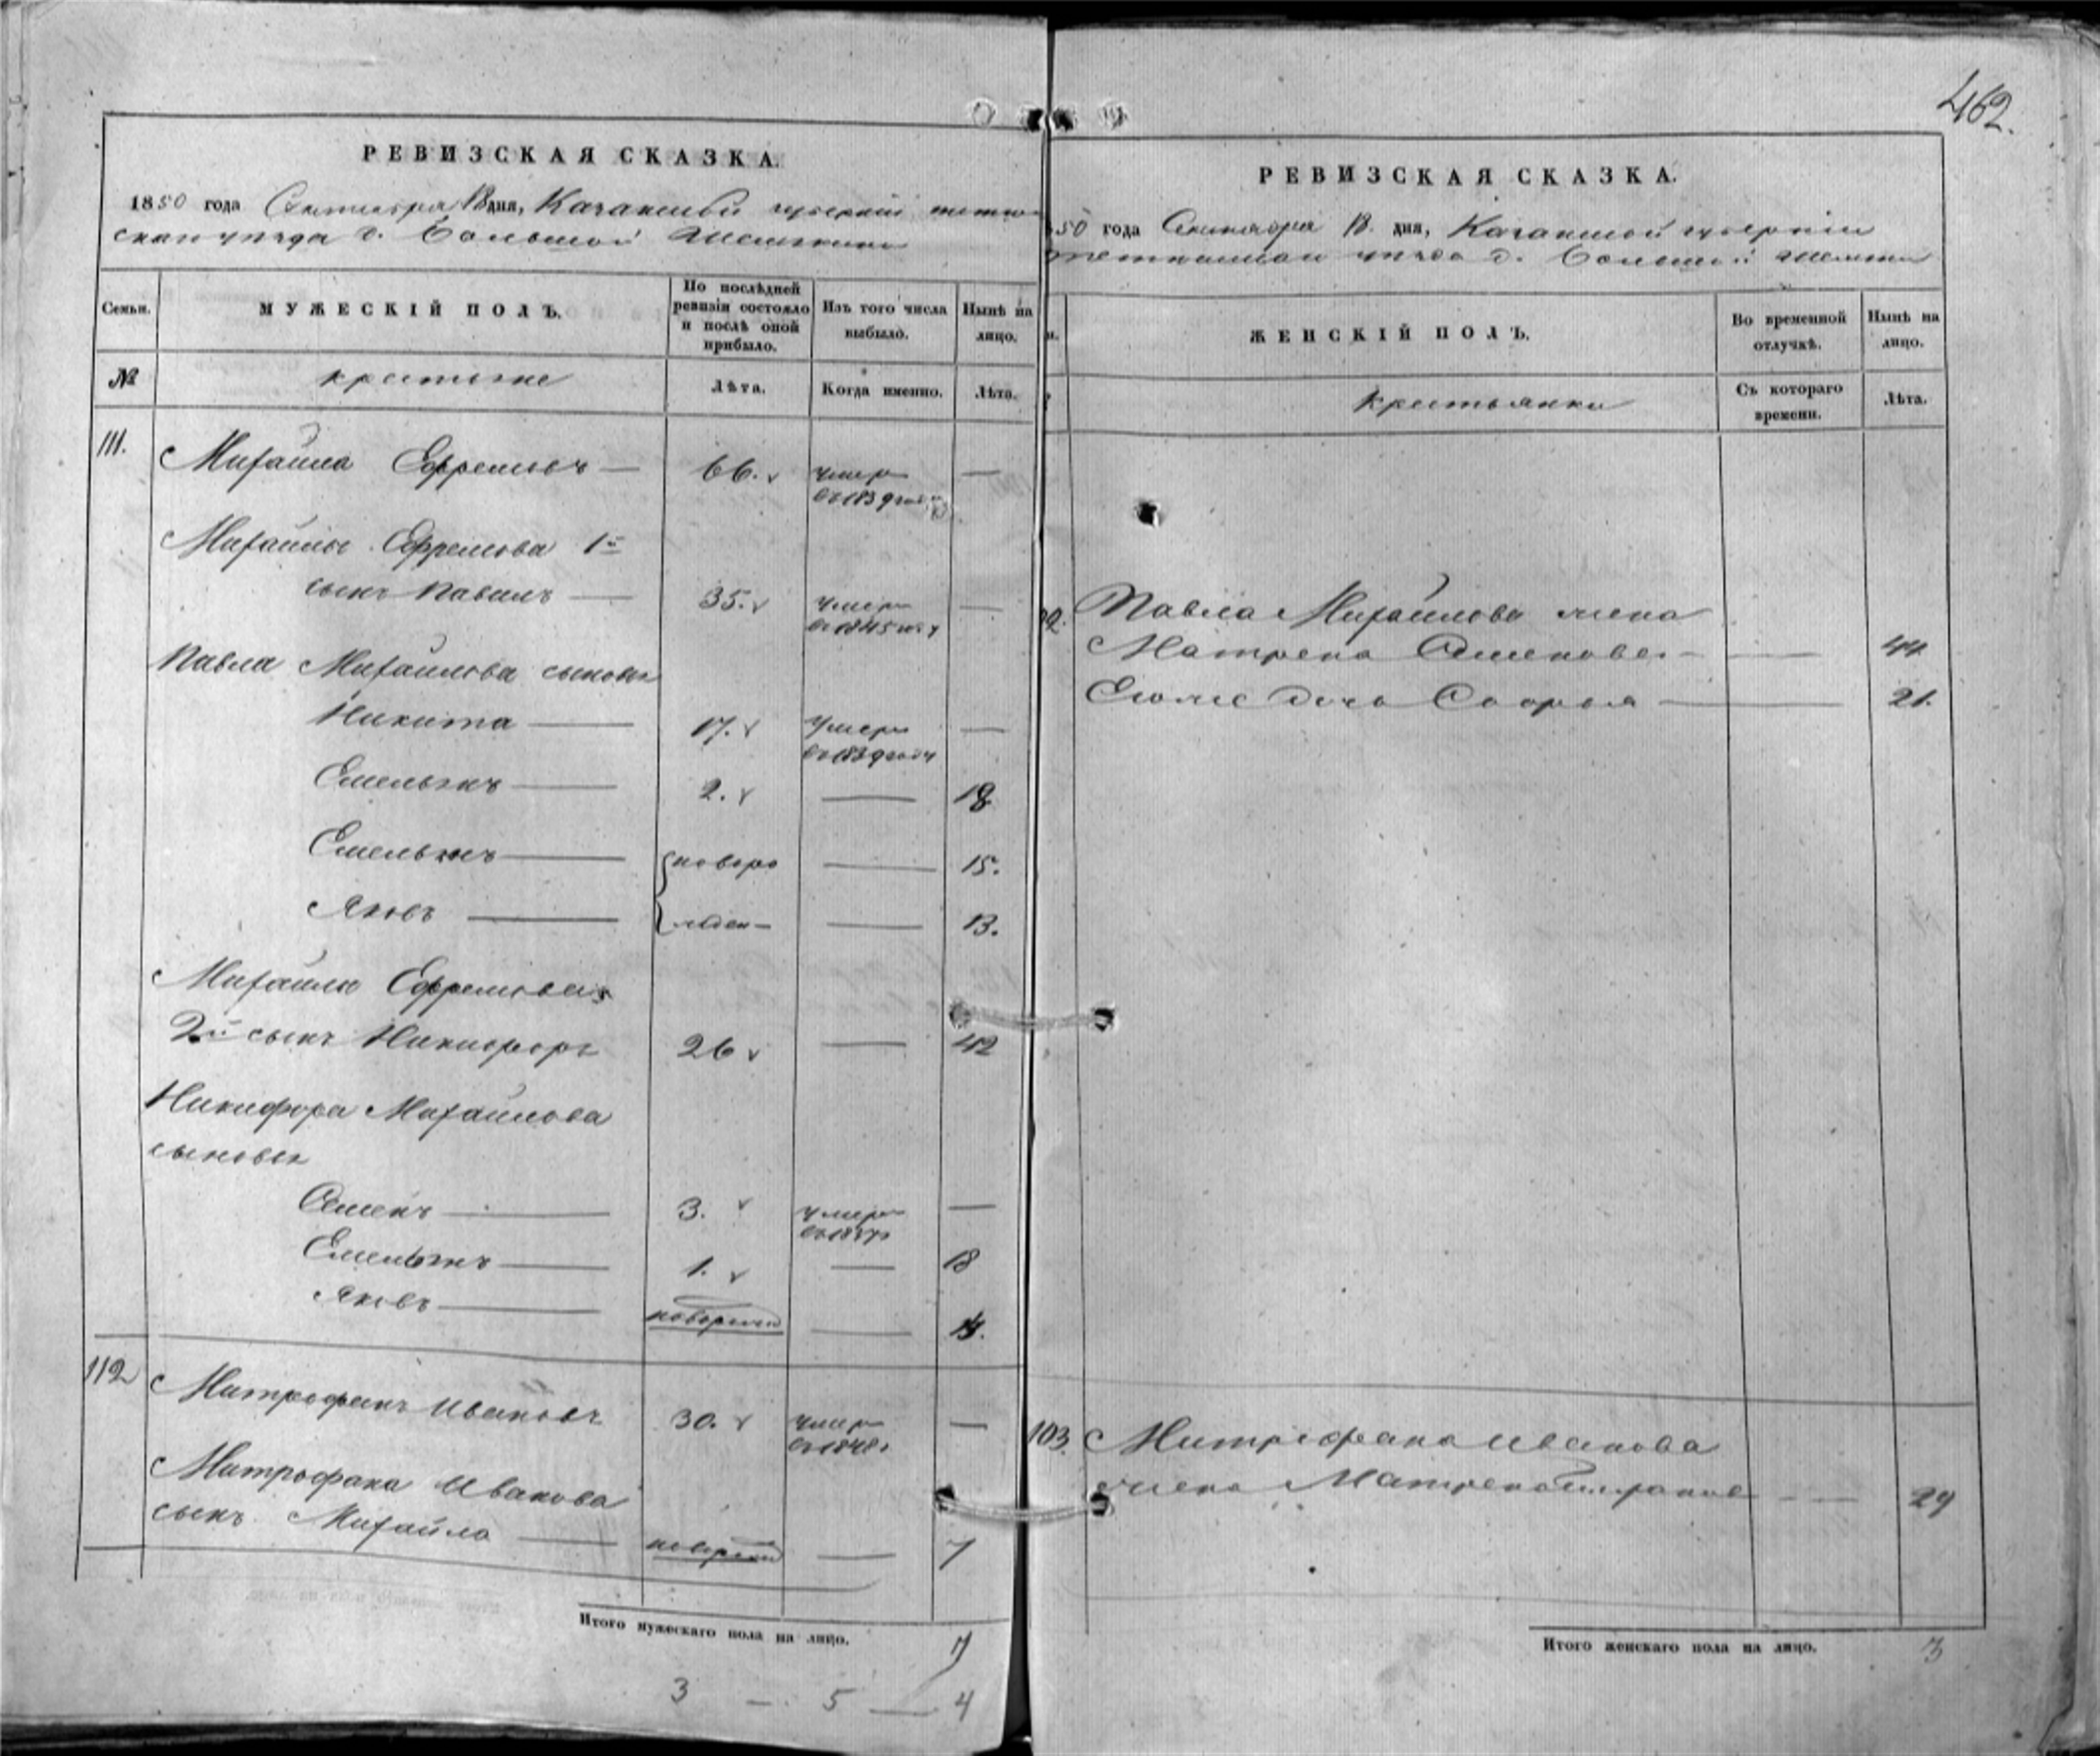 462.
РЕВИЗСКАЯ СКАЗКА.
1850 года Сентября 18 дня, Казанской губернии
уезда д. Большой
Семьи.
МУЖЕСКІЙ ПОЛЪ.
По послѣдней ревизіи состояло и послѣ оной прибыло.
Изъ того числа выбыло.
Нынѣ на лицо.
№
крестьяне
Лѣта.
Когда именно.
Лѣта.
111.
Михайла Ефремовъ — 66. умеръ —
въ 1839 году
Михайлы Ефремова 1й
сынъ Павелъ — 35. умеръ —
въ 1845 г.
Павла Михайлова сыновья
Никита — 17. умеръ —
въ 1839 году
Емельянъ — 2. — 18
Емельянъ — новоро — 15.
Яковъ — жден — 13.
Михайлы Ефремова
2й сынъ Никифоръ 26 — 42
Никифора Михайлова
сыновья
Семенъ — 3. умеръ —
Емельянъ — 1. — 18
Яковъ — новорожд —
112
Митрофанъ Ивановъ 30. умеръ —
Митрофана Иванова
сынъ Михайло — новорожд — 7
Итого мужескаго пола на лицо. 7
3 — 5 — 4
РЕВИЗСКАЯ СКАЗКА.
50 года Сентября 18 дня, Казанской губерніи
уезда д. Большой
ЖЕНСКІЙ ПОЛЪ.
Во временной отлучкѣ.
Нынѣ на лицо.
крестьянки
Съ котораго времени.
Лѣта.
Павла Михайлова жена
Матрена Семенова — 44
Ево же дочь Софья — 21.
103. Митрофана Иванова
жена Матрена — 29
Итого женскаго пола на лицо. 3